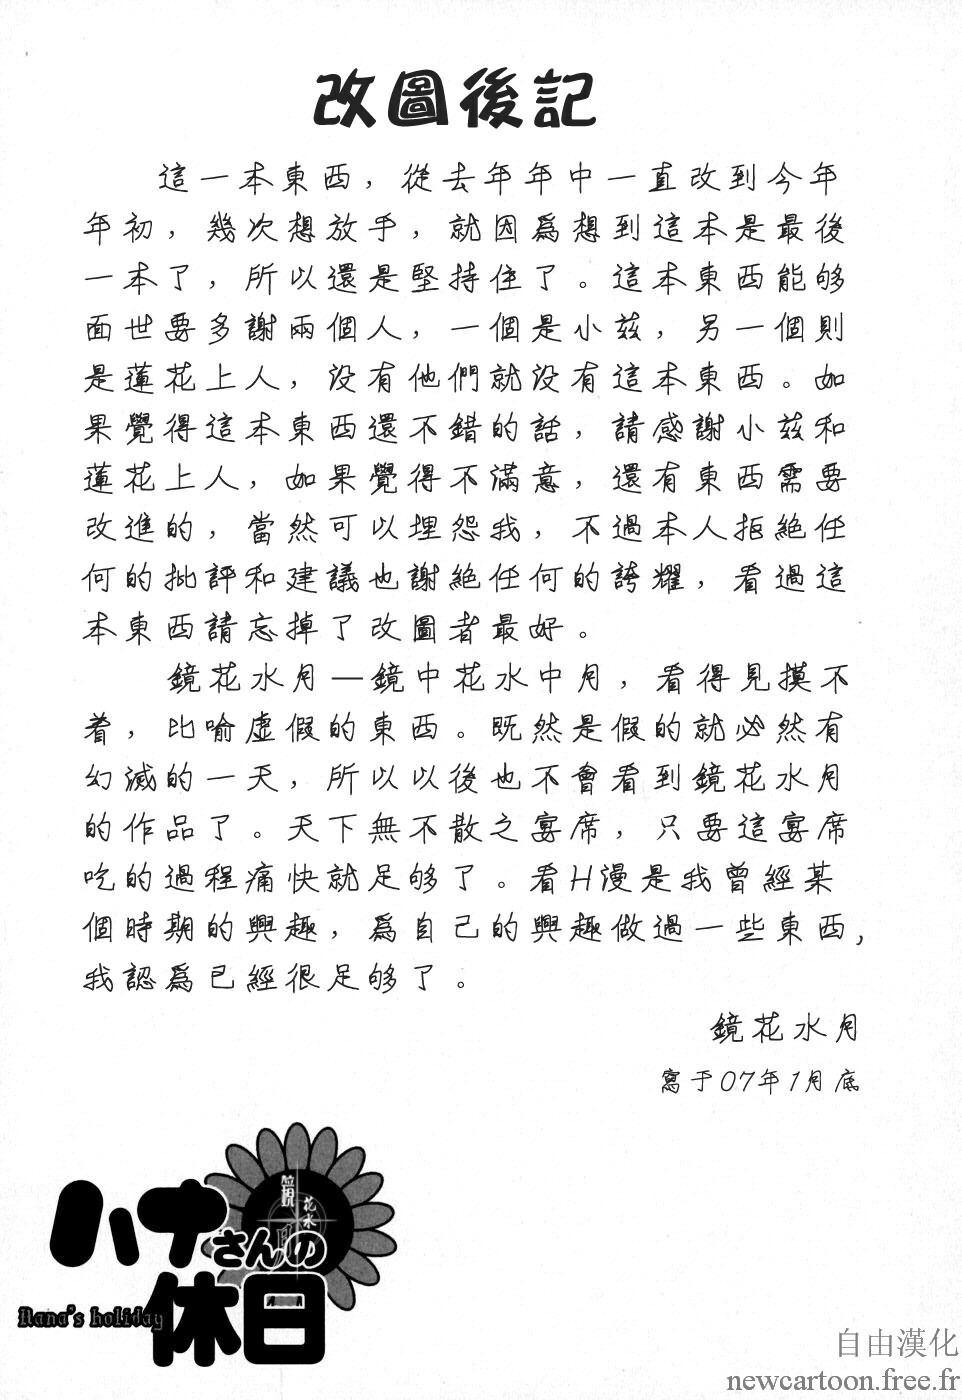 改圖後記
這一本東西，從去年年中一直改到今年
年初，幾次想放手，就因爲想到這本是最後
一本了，所以還是堅持住了。這本東西能够
面世要多謝兩個人，一個是小兹，另一個則
是蓮花上人，没有他們就没有這本東西。如
果覺得這本東西還不錯的話，請感謝小兹和
蓮花上人，如果覺得不滿意，還有東西需要
改進的，當然可以埋怨我，不過本人拒絶任
何的批評和建議也謝絶任何的誇耀，看過這
本東西請忘掉了改圖者最好。
鏡花水月—鏡中花水中月，看得見摸不
着，比喻虚假的東西。既然是假的就必然有
幻滅的一天，所以以後也不會看到鏡花水月
的作品了。天下無不散之宴席，只要這宴席
吃的過程痛快就足够了。看H漫是我曾經某
個時期的興趣，爲自己的興趣做過一些東西，
我認爲已經很足够了。
鏡花水月
寫于07年1月底
花水
ハナさんの
休日
Nana's holiday
自由漢化
newcartoon.free.fr